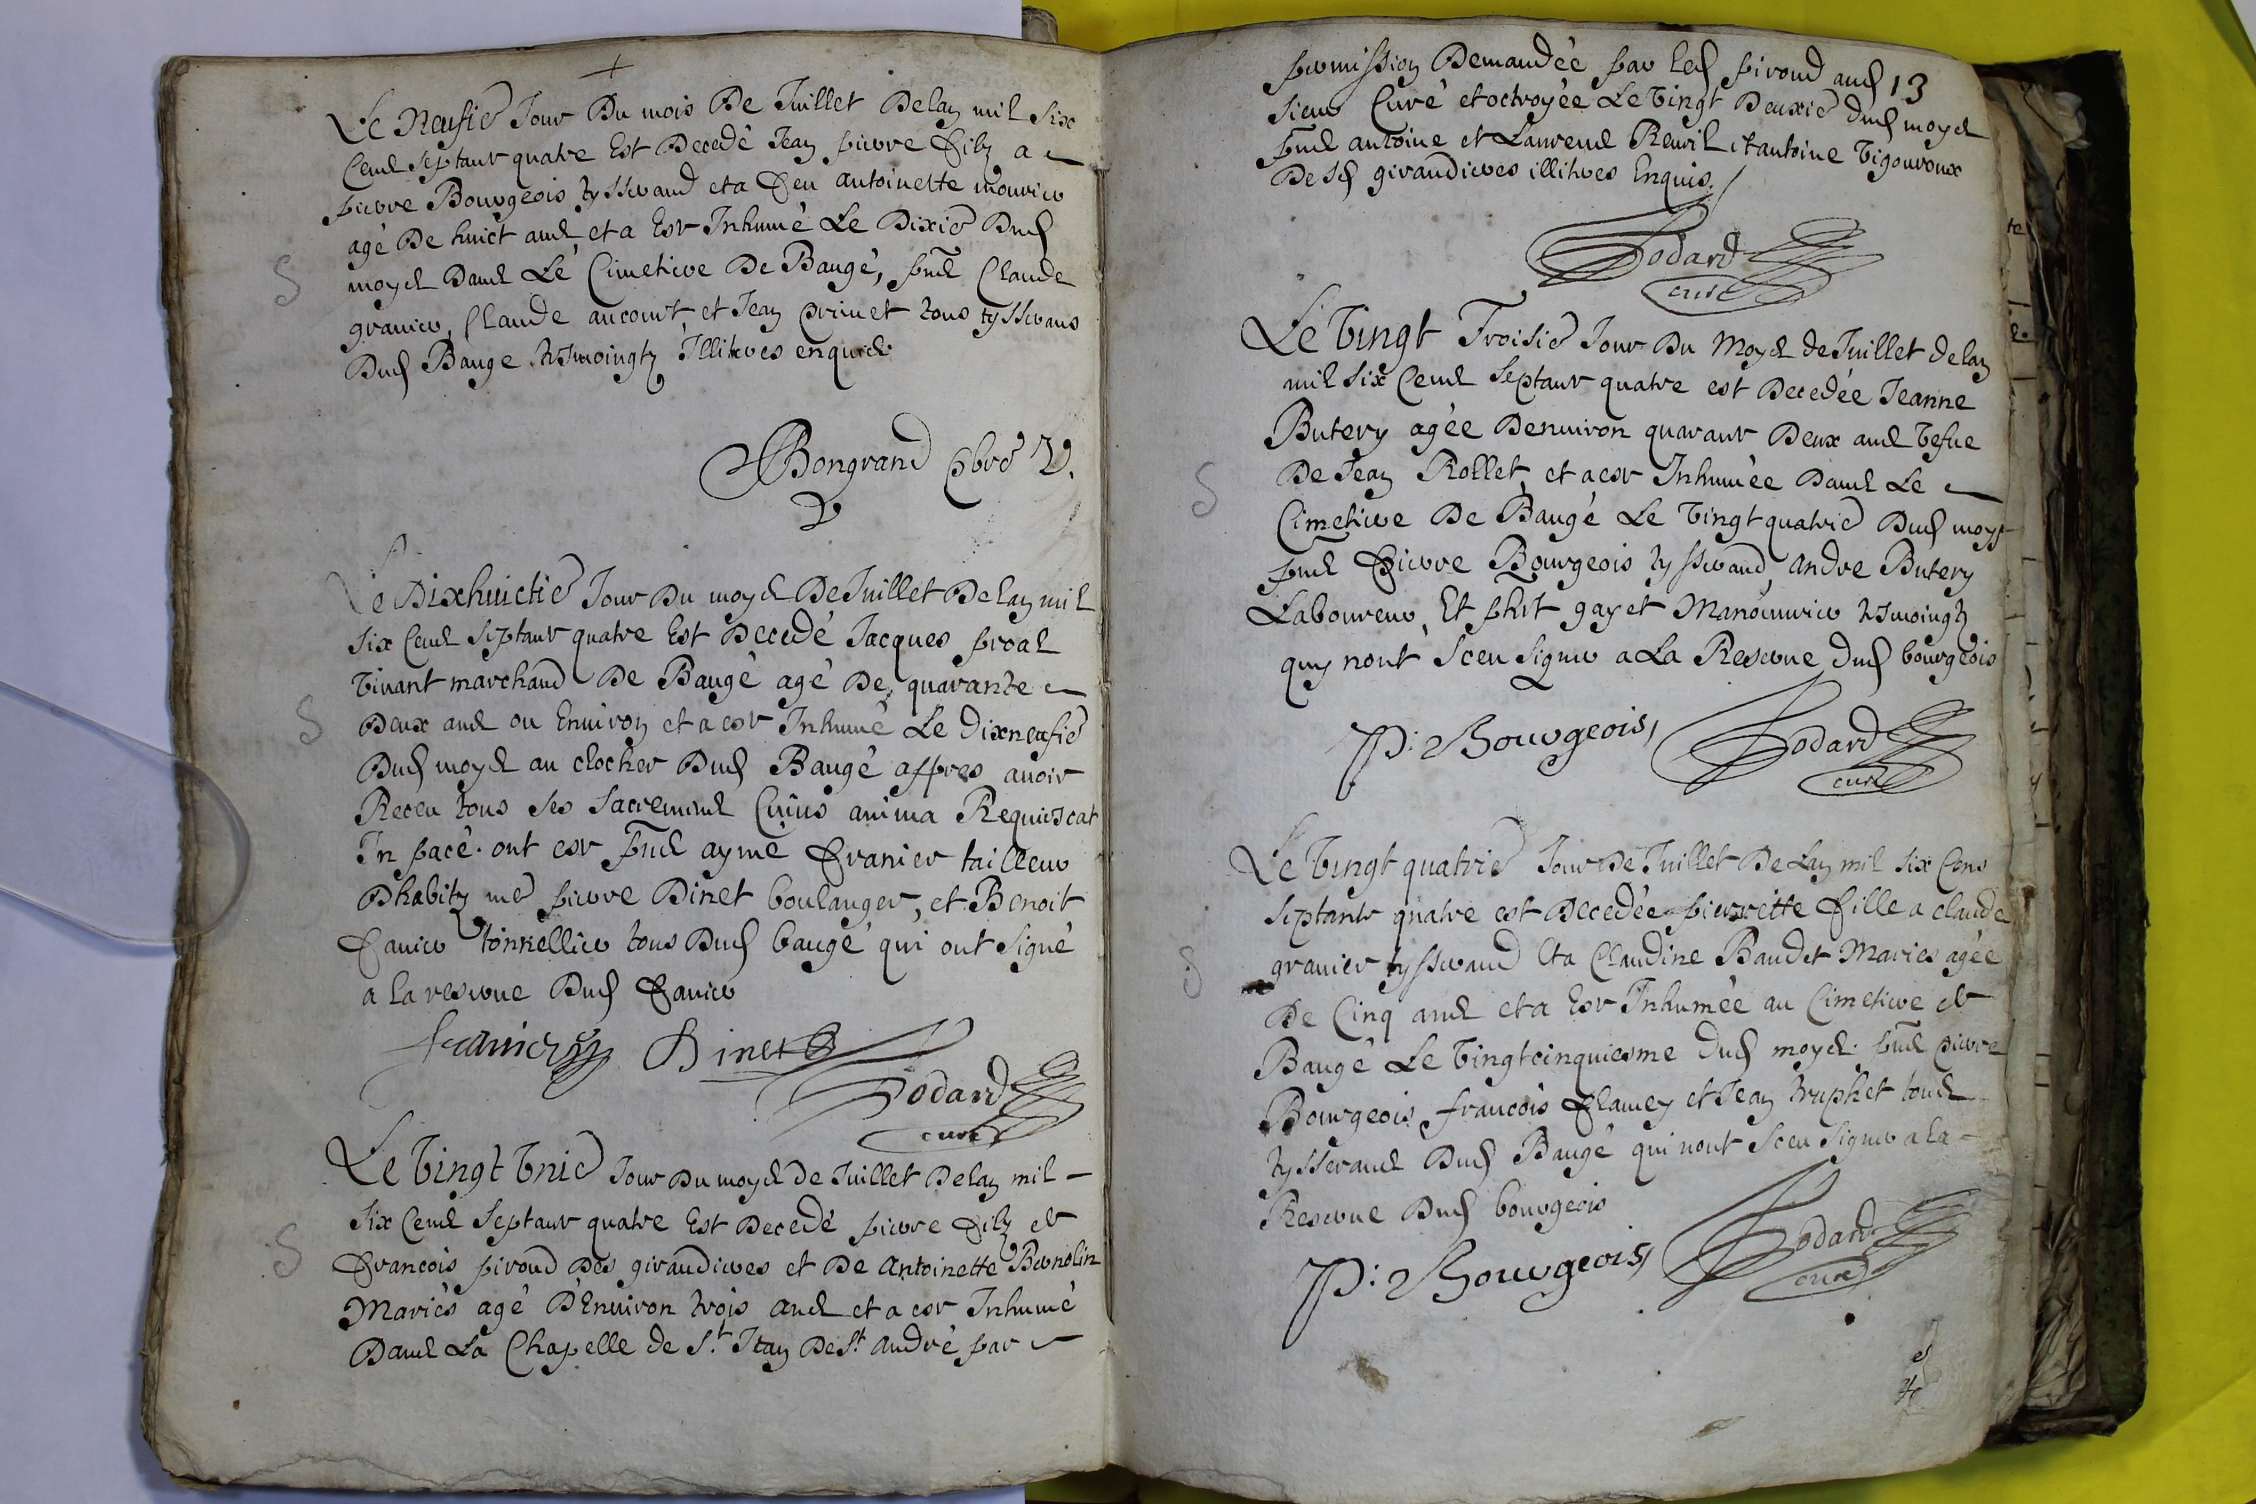 Le Neufie Jour Du mois De Juillet Delan mil six
Cens septante quatre Est Decedé Jean pierre filz a
pierre Bourgeois tysserand et a feu antoinette mourier
agé De huict ans et a Este Inhumé Le Dixie Dud
moys Dans Le Cimetiere De Baugé, pns Claude
granier, Claude aucourt et Jean prinet tous tysserans
Dud Bauge tesmoingtz Illiteres enquis
Bongrand pbre V.
Le Dixhuictie Jour Du moys De Juillet Delan mil
six Cens septante quatre Est Decedé Jacques proal
Vivant marchand De Baugé agé De quarante
Deux ans ou Environ et a este Inhumé Le Dixneufie
Dud moys au clocher Dud Baugé appres avoir
Receu tous ses sacremens Cuius anima Requiescat
In pace. ont este pns aymé franier tailleur
Dhabitz me pierre Dinet boulanger, et Benoit
favier tonnellier tous Dud baugé qui ont signé
a la reserve Dud favier
franier Dinet
Godard
curé
Le Vingt Vnie Jour Du moys de Juillet Delan mil
six Cens septante quatre Est Decedé pierre filz de
francois piroud Des giraudieres et De Antoinette Bernolin
Mariés agé D'Environ trois ans et a este Inhumé
Dans La Chapelle de St. Jean De St. André par
13
permission Demandée par led piroud aud
sieur Curé et octroyée Le Vingt Deuxie dud moys
pns antoine et Laurens Revil et antoine Vigouroux
De sd giraudieres illiteres Enquis.
Godard
curé
Le Vingt Troisie Jour Du Moys de Juillet delan
mil six Cens septante quatre est Decedée Jeanne
Butery agée Denviron quarante Deux ans Vefue
De Jean Rollet, et a este Inhumée Dans Le
Cimetiere De Baugé Le Vingt quatrie Dud moys
pns Pierre Bourgeois tysserand, Andre Butery
Laboureur, Et phit gayet Manouvrier tesmoingtz
quy nont sceu signer a La Reserve dud bourgeois
P: Bourgeois, Godard
curé
Le Vingt quatrie Jour De Juillet De Lan mil six Cens
septante quatre est Decedée pierrette fille a claude
granier tysserand Et a Claudine Baudet Mariés agée
De Cinq ans et a Este Inhumée au Cimetiere de
Baugé Le Vingtcinquiesme dud moys. pns pierre
Bourgeois, francois flamey et Jean truphet tous
tysserans Dud Baugé qui nont sceu signer a la
Reserve Dud bourgeois
P: Bourgeois, Godard
curé